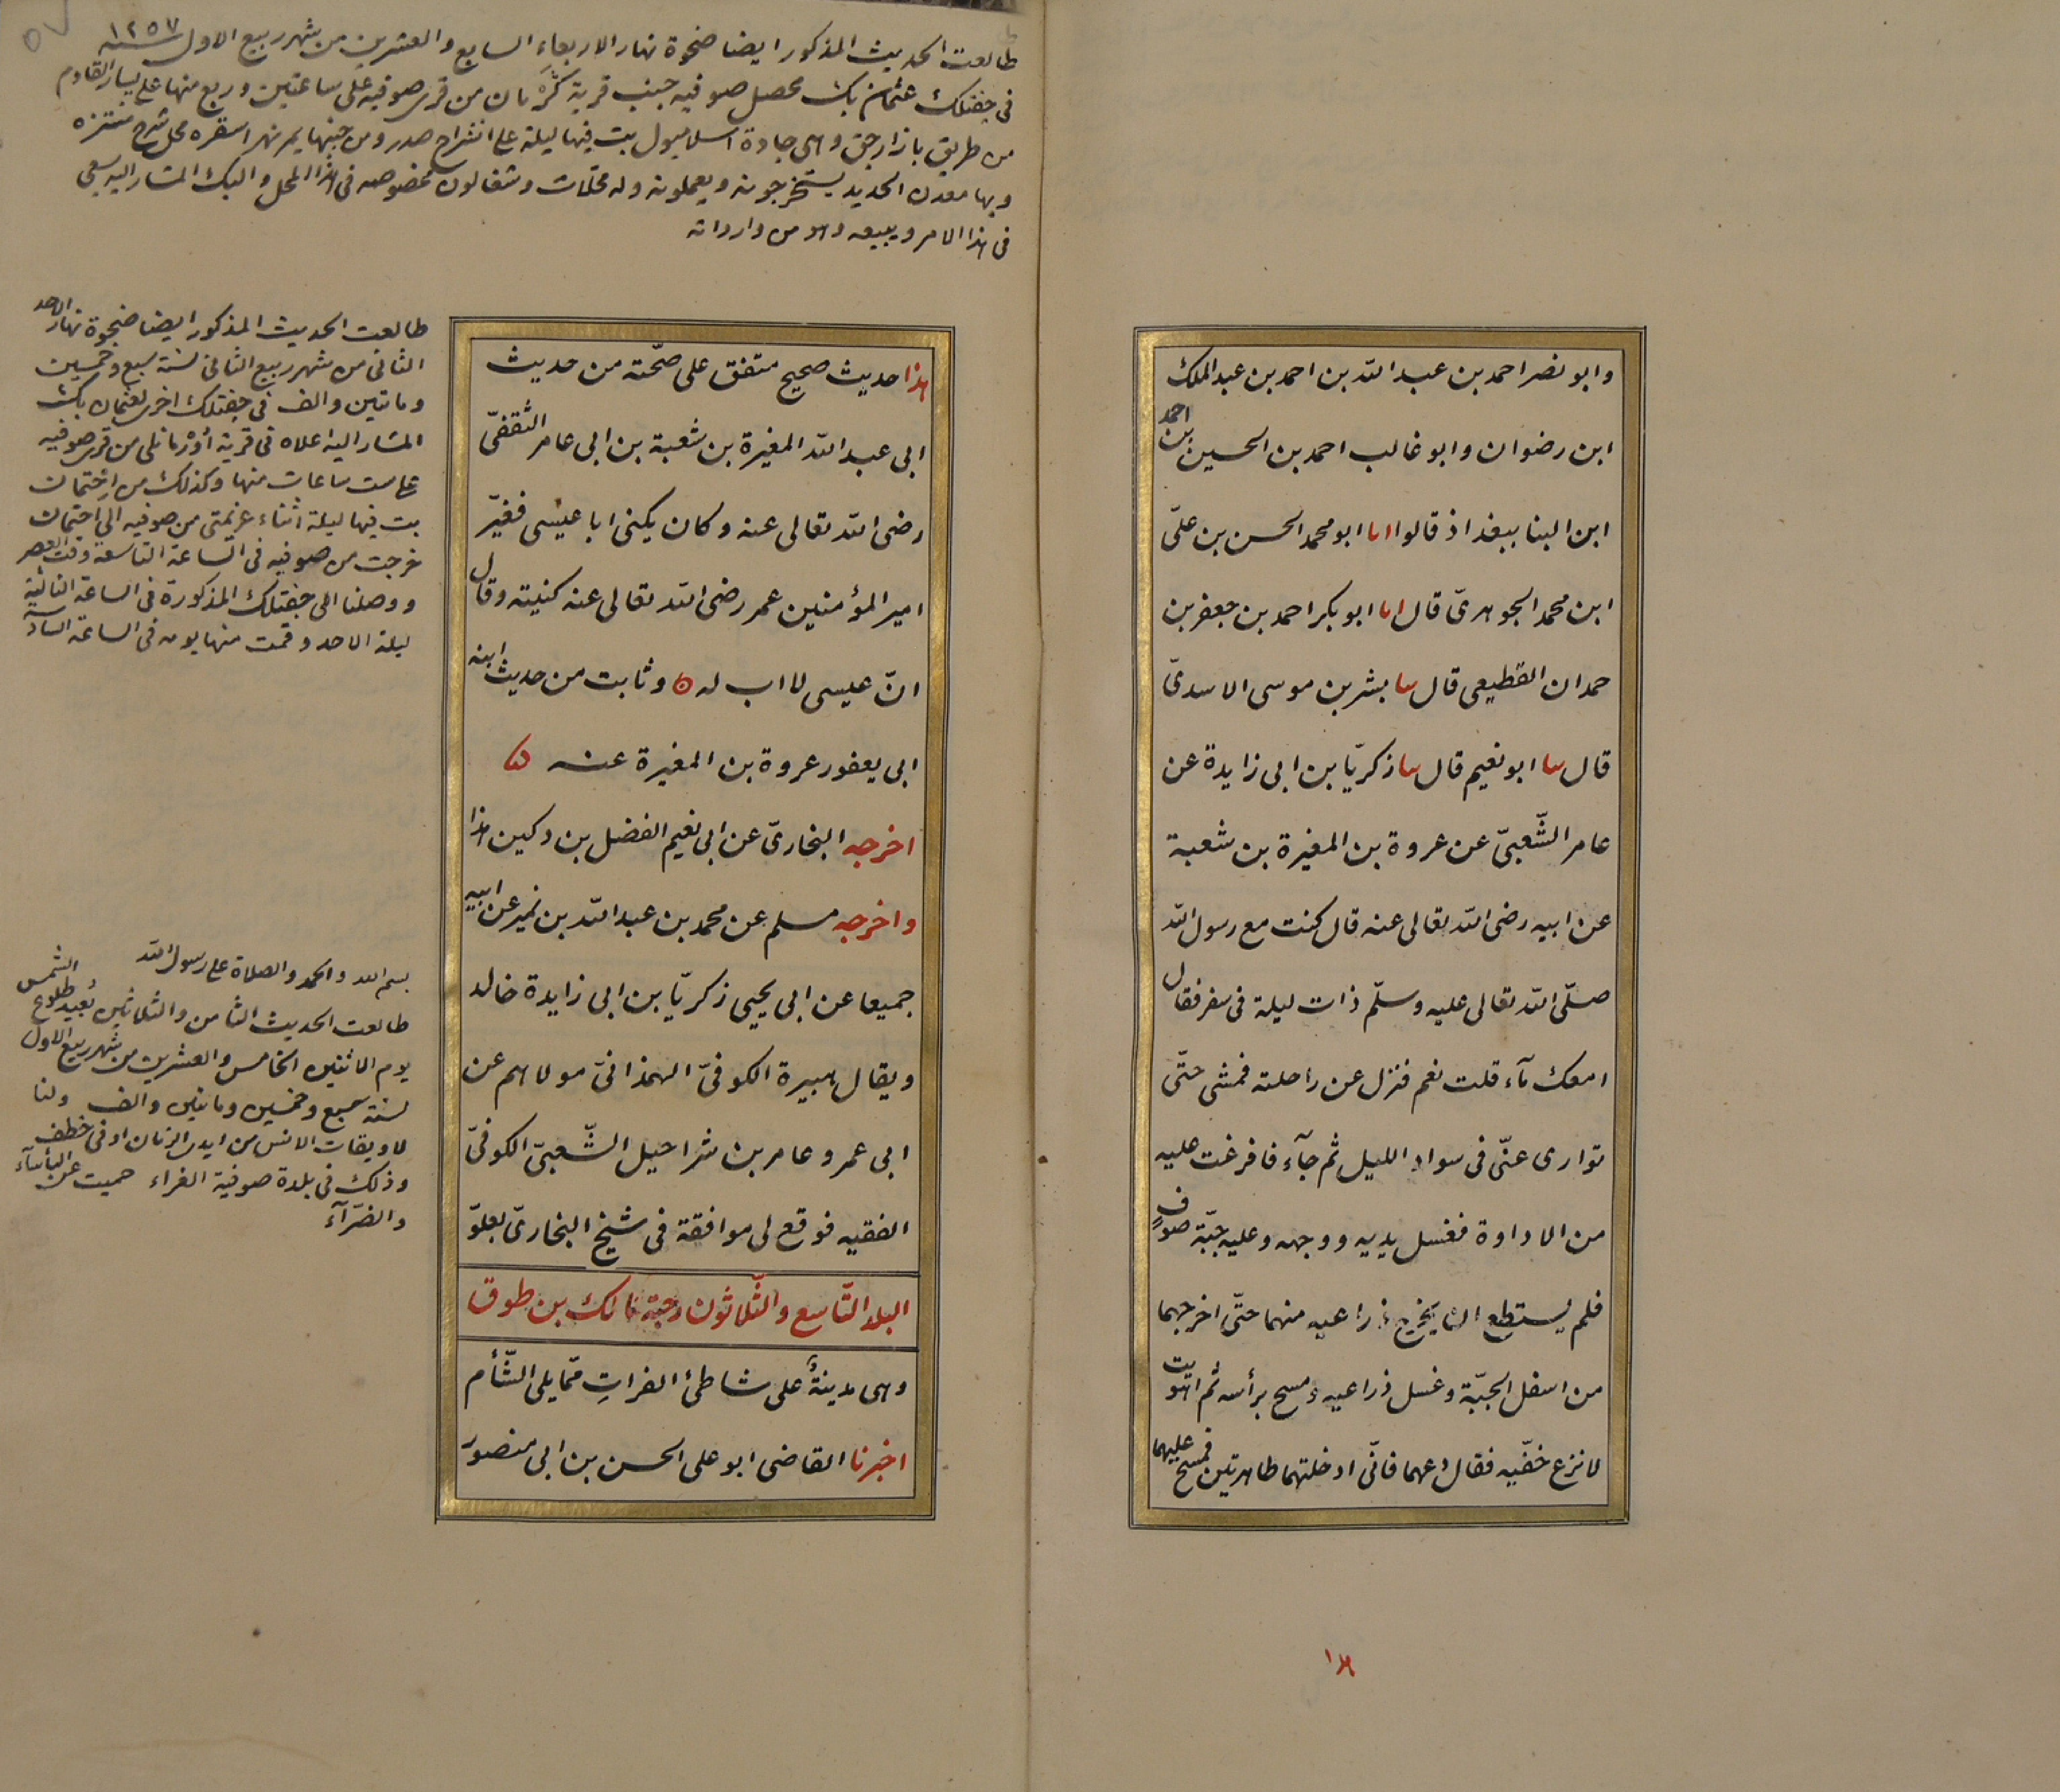 وابو نصر احمد بن عبد الله بن احمد بن عبد الملك
ابن رضوان وابو غالب احمد بن الحسين بن احمد
ابن البنا ببغداذ قالوا انا ابو محمد الحسن بن علىّ
ابن محمد الجوهرىّ قال انا ابو بكر احمد بن جعفر بن
حمدان القطيعى قال سا بشر بن موسى الاسدىّ
قال سا ابو نعيم قال سا زكريّا بن ابى زايدة عن
عامر الشّعبىّ عن عروة بن المغيرة بن شعبة
عن ابيه رضى الله تعالى عنه قال كنت مع رسول الله
صلّى الله تعالى عليه وسلّم ذات ليلة فى سفر فقال
امعك مآء قلت نعم فنزل عن راحلته فمشى حتّى
توارى عنّى فى سواد الليل ثم جآء فافرغت عليه
من الاداوة فغسل يديه ووجهه وعليه جبّة صوفٍ
فلم يستطع ان يخرج ذراعيه منهما حتّى اخرجهما
من اسفل الجبّة وغسل ذراعيه ومسح برأسه ثم اهويت
لانزع خفّيه فقال دعهما فانّى ادخلتهما طاهرتين فمسح عليهما
هذا
طالعت الحديث المذكور ايضا ضحوة نهار الاربعاء السابع والعشرين من شهر ربيع الاول سنه ١٢٥٧
فى جفتلك عثمان بك محصل صوفيه جنب قرية من قرى صوفيه على ساعتين وربع منها على يسار القادم
من طريق بازارجق وهى جادة اسلامبول بت فيها ليلة على انشراح صدر ومن جنبها يمر نهر اسقره محل شرح منتزه
وبها معدن الحديد يستخرجونه ويعملونه وله محلات وشغالون مخصوصه فى هذا المحل والبك المشار اليه سعى
فى هذا الامر ويبيعه وهو من وارداته
هذا حديث صحيح متفق على صحّته من حديث
ابى عبد الله المغيرة بن شعبة بن ابى عامر الثقفىّ
رضى الله تعالى عنه وكان يكنى ابا عيسى فغيّر
امير المؤمنين عمر رضى الله تعالى عنه كنيته وقال
انّ عيسى لا اب له ه وثابت من حديث ابنه
ابى يعفور عروة بن المغيرة عنه
اخرجه البخارىّ عن ابى نعيم الفضل بن دكين هذا
واخرجه مسلم عن محمد بن عبد الله بن نمير عن ابيه
جميعا عن ابى يحيى زكريّا بن ابى زايدة خالد
ويقال هبيرة الكوفىّ الهمذانىّ مولاهم عن
ابى عمرو عامر بن شراحيل الشّعبىّ الكوفىّ
الفقيه فوقع لى موافقة فى شيخ البخارىّ بعلوّ
البلد التّاسع والثّلاثون رحبة مالك بن طوق
وهى مدينةٌ على شاطئ الفراتِ ممّا يلى الشّأم
اخبرنا القاضى ابو على الحسن بن ابى منصور
طالعت الحديث المذكور ايضا ضحوة نهار الاحد
الثانى من شهر ربيع الثانى سنة سبع وخمسين
وماتين والف فى جفتلك اخرى لعثمان بك
المشار اليه اعلاه فى قرية من قرى صوفيه
على ست ساعات منها وكذلك من اختمان
بت فيها ليلة اثناء عزيمتى من صوفيه الى اختمان
خرجت من صوفيه فى الساعة التاسعة وقت العصر
ووصلنا الى جفتلك المذكورة فى الساعة الثالثة
ليلة الاحد وقمت منها يومه فى الساعة
بسم الله والحمد والصلاة على رسول الله
طالعت الحديث الثامن والثلاثين بعيد طلوع الشمس
يوم الاثنين الخامس والعشرين من شهر ربيع الاول
لسنة سبع وخمسين وماتين والف ولنا
لاويقات الانس من ايدى الزمان اوفى خطف
وذلك فى بلدة صوفية الغراء حميت عن البأسآء
والضرّآء